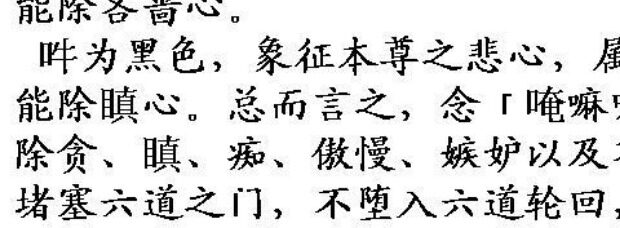 能除吝啬心。
吽为黑色，象征本尊之悲心，属
能除瞋心。总而言之，念「唵嘛
除贪、瞋、痴、傲慢、嫉妒以及
堵塞六道之门，不堕入六道轮回，